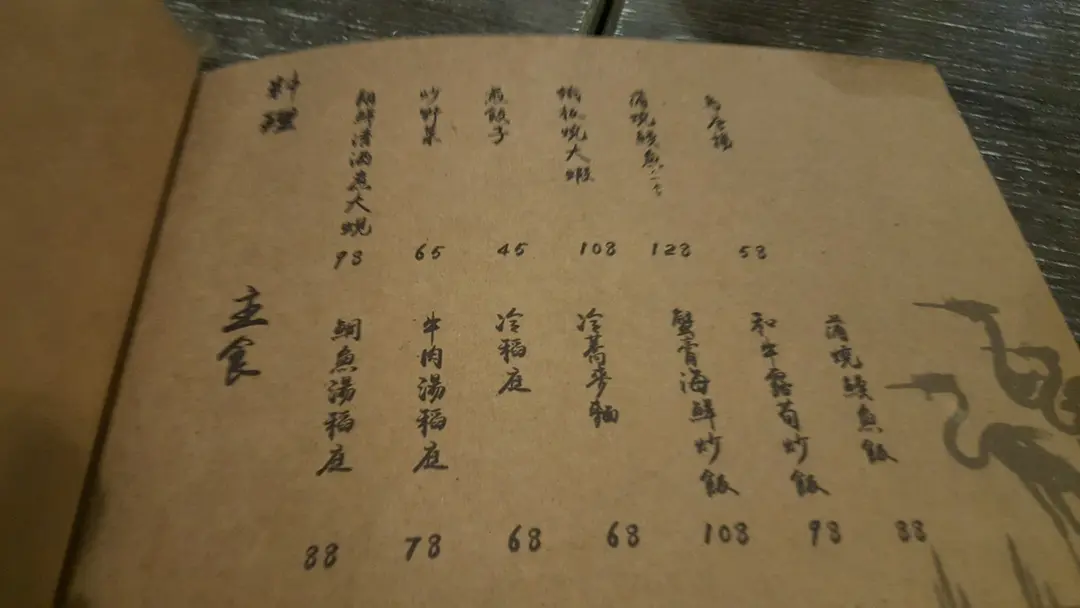 料理
清酒煮大蜆
98
炒野菜
65
煎餃子
45
鐵板燒大蝦
108
蒲燒鰻魚
128
58
主食
鯛魚湯稻庭
88
牛肉湯稻庭
78
冷稻庭
68
冷蕎麥麵
68
蟹膏海鮮炒飯
108
和牛露筍炒飯
98
蒲燒鰻魚飯
88